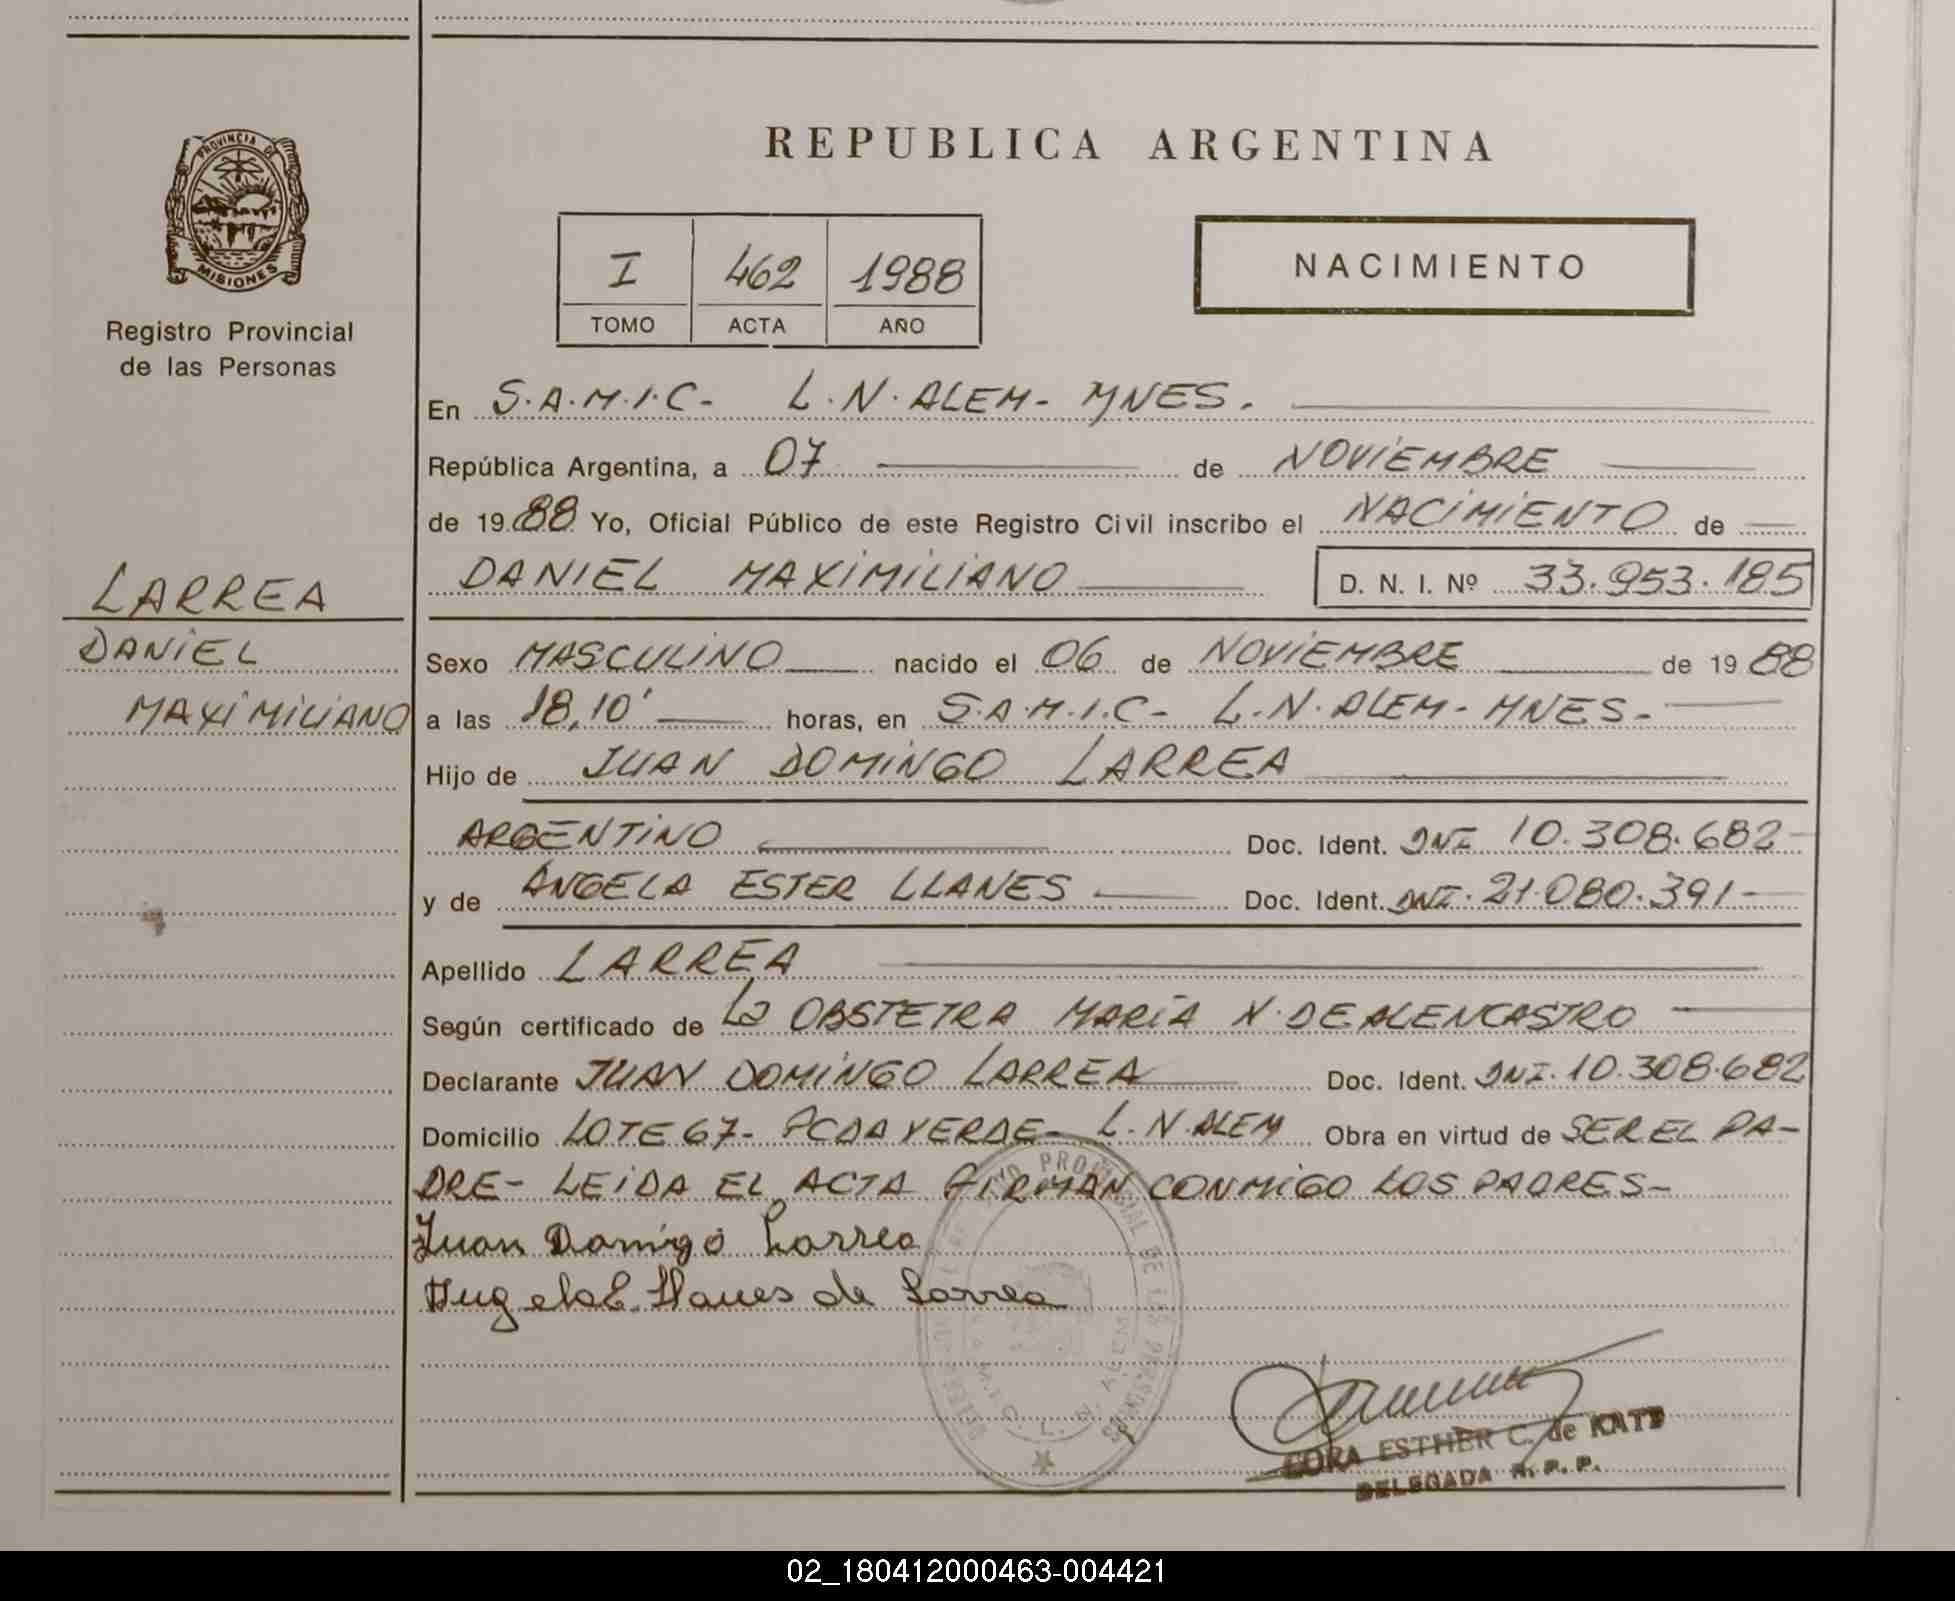 PROVINCIA DE
MISIONES
Registro Provincial
de las Personas
LARREA
DANIEL
MAXIMILIANO
REPUBLICA ARGENTINA
I 462 1988
TOMO ACTA AÑO
NACIMIENTO
En S.A.M.I.C- L.N.ALEM- MNES.
República Argentina, a 07 de NOVIEMBRE
de 19 88 Yo, Oficial Público de este Registro Civil inscribo el NACIMIENTO de
DANIEL MAXIMILIANO D. N. I. Nº 33.953.185
Sexo MASCULINO nacido el 06 de NOVIEMBRE de 19 88
a las 18,10' horas, en S.A.M.I.C- L.N.ALEM- MNES-
Hijo de JUAN DOMINGO LARREA
ARGENTINO Doc. Ident. DNI 10.308.682-
y de ÁNGELA ESTER LLANES Doc. Ident. DNI. 21.080.391-
Apellido LARREA
Según certificado de La OBSTETRA MARÍA N. DE ALENCASTRO
Declarante JUAN DOMINGO LARREA Doc. Ident. DNI. 10.308.682
Domicilio LOTE 67- PCDA VERDE- L.N.ALEM Obra en virtud de SER EL PA-
DRE- LEIDA EL ACTA FIRMAN CONMIGO LOS PADRES-
Juan Domingo Larrea
Angela E. Llanes de Larrea
PROVINCIAL DE LAS PERSONAS
S.A.M.I.C. L. N. ALEM
ESTHER C. de KATZ
DELEGADA R. P. P.
02_180412000463-004421